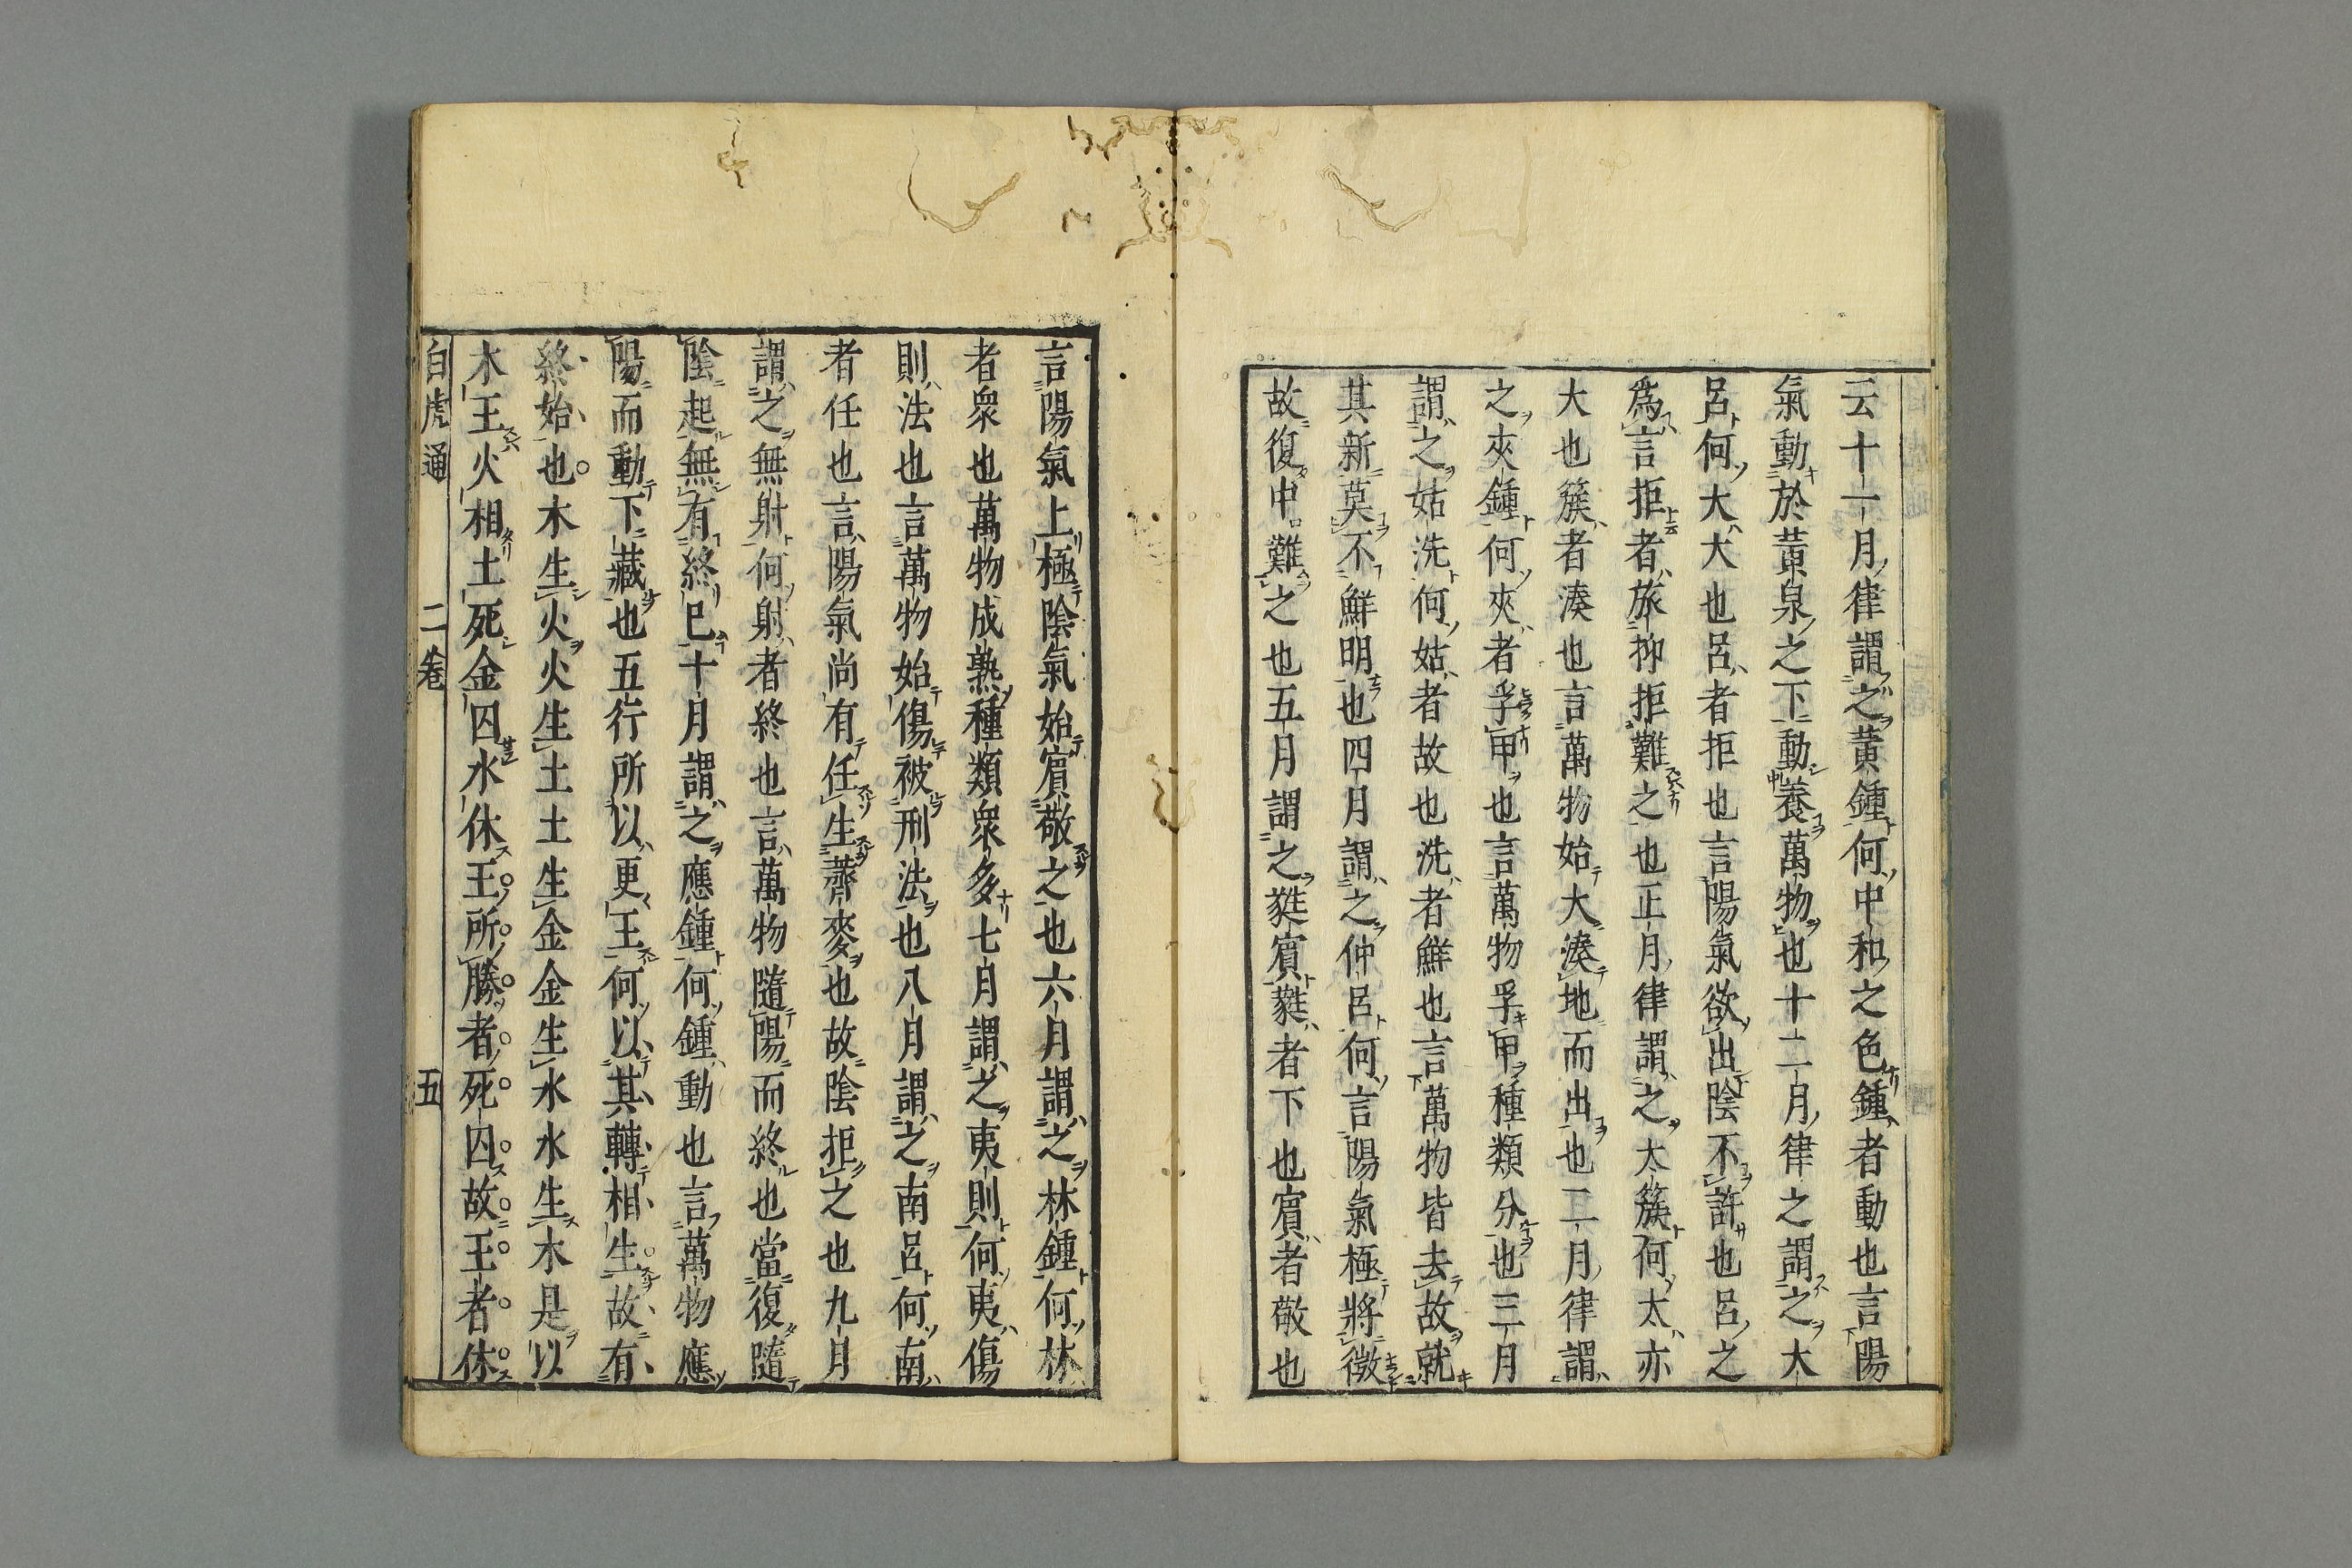 云十一月律謂之黃鍾何中和之色鍾者動也言陽
氣動於黃泉之下動養萬物也十二月律之謂之大
呂何大大也呂者拒也言陽氣欲出陰不許也呂之
為言拒者旅抑拒難之也正月律謂之太簇何太亦
大也簇者湊也言萬物始大湊地而出也二月律謂
之夾鍾何夾者孚甲也言萬物孚甲種類分也三月
謂之姑洗何姑者故也洗者鮮也言萬物皆去故就
其新莫不鮮明也四月謂之仲呂何言陽氣極將微
故復中難之也五月謂之蕤賓蕤者下也賓者敬也
言陽氣上極陰氣始賓敬之也六月謂之林鍾何林
者衆也萬物成熟種類衆多七月謂之夷則何夷傷
則法也言萬物始傷被刑法也八月謂之南呂何南
者任也言陽氣尚有任生薺麥也故陰拒之也九月
謂之無射何射者終也言萬物隨陽而終也當復隨
陰起無有終已十月謂之應鍾何鍾動也言萬物應
陽而動下藏也五行所以更王何以其轉相生故有
終始也木生火火生土土生金金生水水生木是以
木王火相土死金囚水休王所勝者死囚故王者休
白虎通 二卷 五